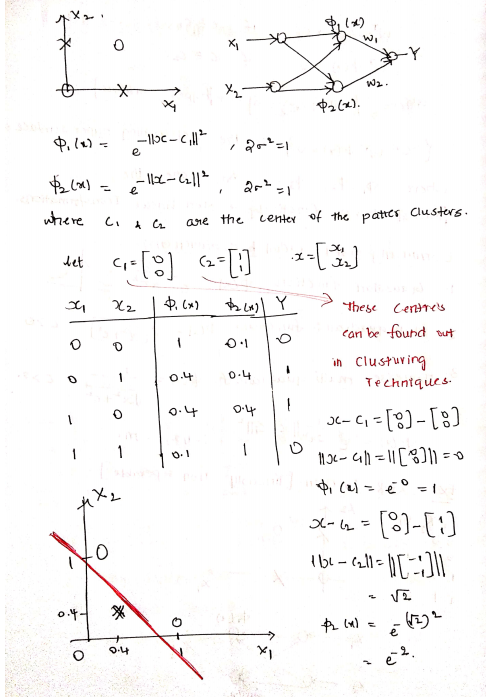 x₂
x₁
x₁
x₂
ϕ₁(x)
w₁
Y
w₂.
ϕ₂(x).
ϕ₁(x) = e^-||x-c₁||² , 2σ²=1
ϕ₂(x) = e^-||x-c₂||² , 2σ²=1
where c₁ & c₂ are the center of the patter clusters.
let c₁ = [0 0] c₂ = [1 1] x = [x₁ x₂]
x₁ x₂ ϕ₁(x) ϕ₂(x) Y
0 0 1 0.1 0
0 1 0.4 0.4 1
1 0 0.4 0.4 1
1 1 0.1 1 0
These centres
can be found out
in clusturing
Techniques.
x-c₁ = [0 0] - [0 0]
||x-c₁|| = ||[0 0]|| = 0
ϕ₁(x) = e^-0 = 1
x-c₂ = [0 0] - [1 1]
||x-c₂|| = ||[-1 -1]||
= √2
ϕ₂(x) = e^-(√2)²
= e^-2.
x₂
1
0.4
0 0.4 1 x₁